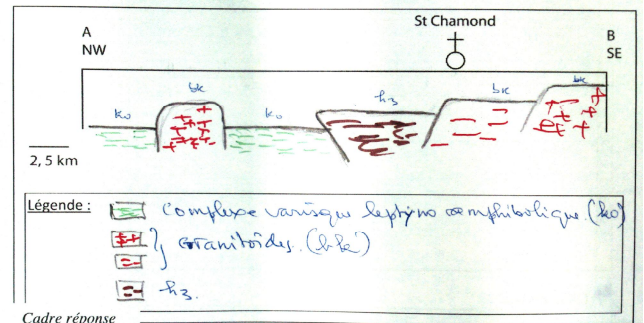 St Chamond
A
NW
B
SE
bk
bk
bk
ko
ko
h3
2, 5 km
Légende :
Complexe varisque leptyno amphibolique. (ko)
Granitoïdes. (bk)
h3.
Cadre réponse